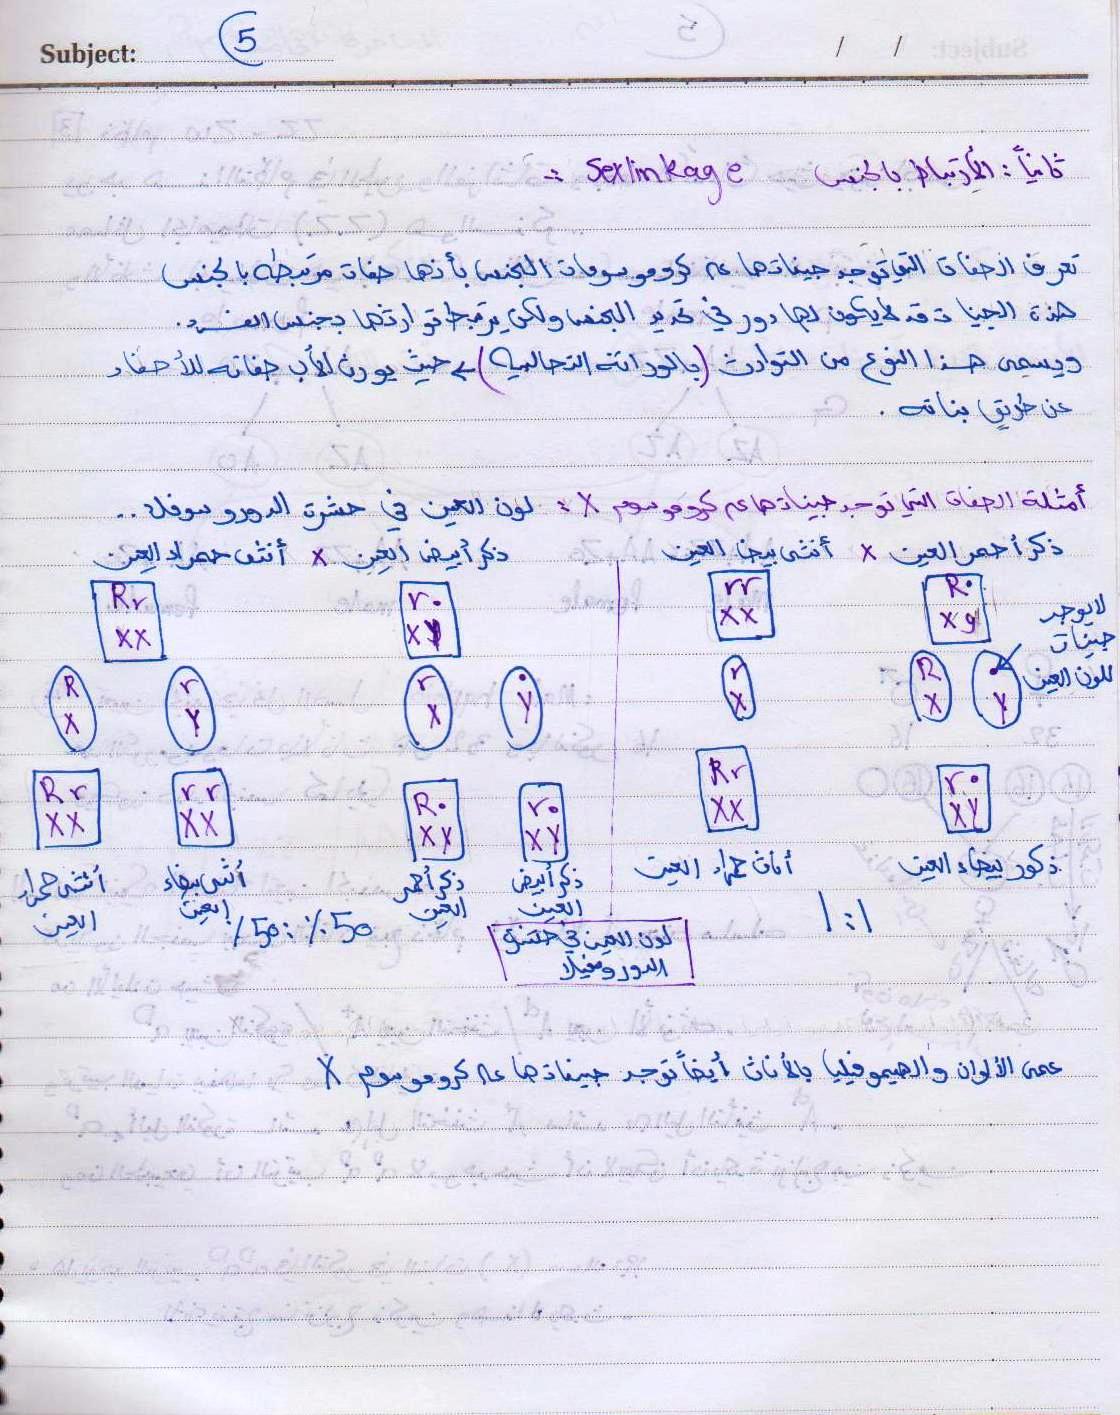 Subject: 5 / /
ثانياً : الأرتباط بالجنس Sexlinkage :-
تعرف الصفات التي توجد جيناتها على كروموسومات الجنس بأنها صفات مرتبطه بالجنس
هذة الجينات قد لا يكون لها دور في تحديد الجنس ولكن يرتبط توارثها بجنس الفرد.
ويسمى هذا النوع من التوارث (بالوراثه التصالبيه) حيث يورث الأب صفاته للأحفاد
عن طريق بناته .
أمثلة الصفات التي توجد جيناتها على كروموسوم X : لون العين في حشرة الدورسوفلا ..
ذكر أحمر العين x أنثى بيضا العين
ذكر أبيض العين x أنثى حمراء العين
R• rr r• Rr
xy xx xy xx
لا يوجد
جينات
للون العين
• R r • r r R
y x x y x y x
r• Rr r• R• rr Rr
XY XX XY XY XX XX
ذكور بيضاء العين أناث حمراء العين
ذكر أبيض العين
ذكر أحمر العين
أنثى بيضاء العين
أنثى حمراء العين
1:1
50% : 50%
لون العين في حشرة
الدوروسفيلا
عمى الألوان والهيموفيليا بالأناث أيضاً توجد جيناتها على كروموسوم X